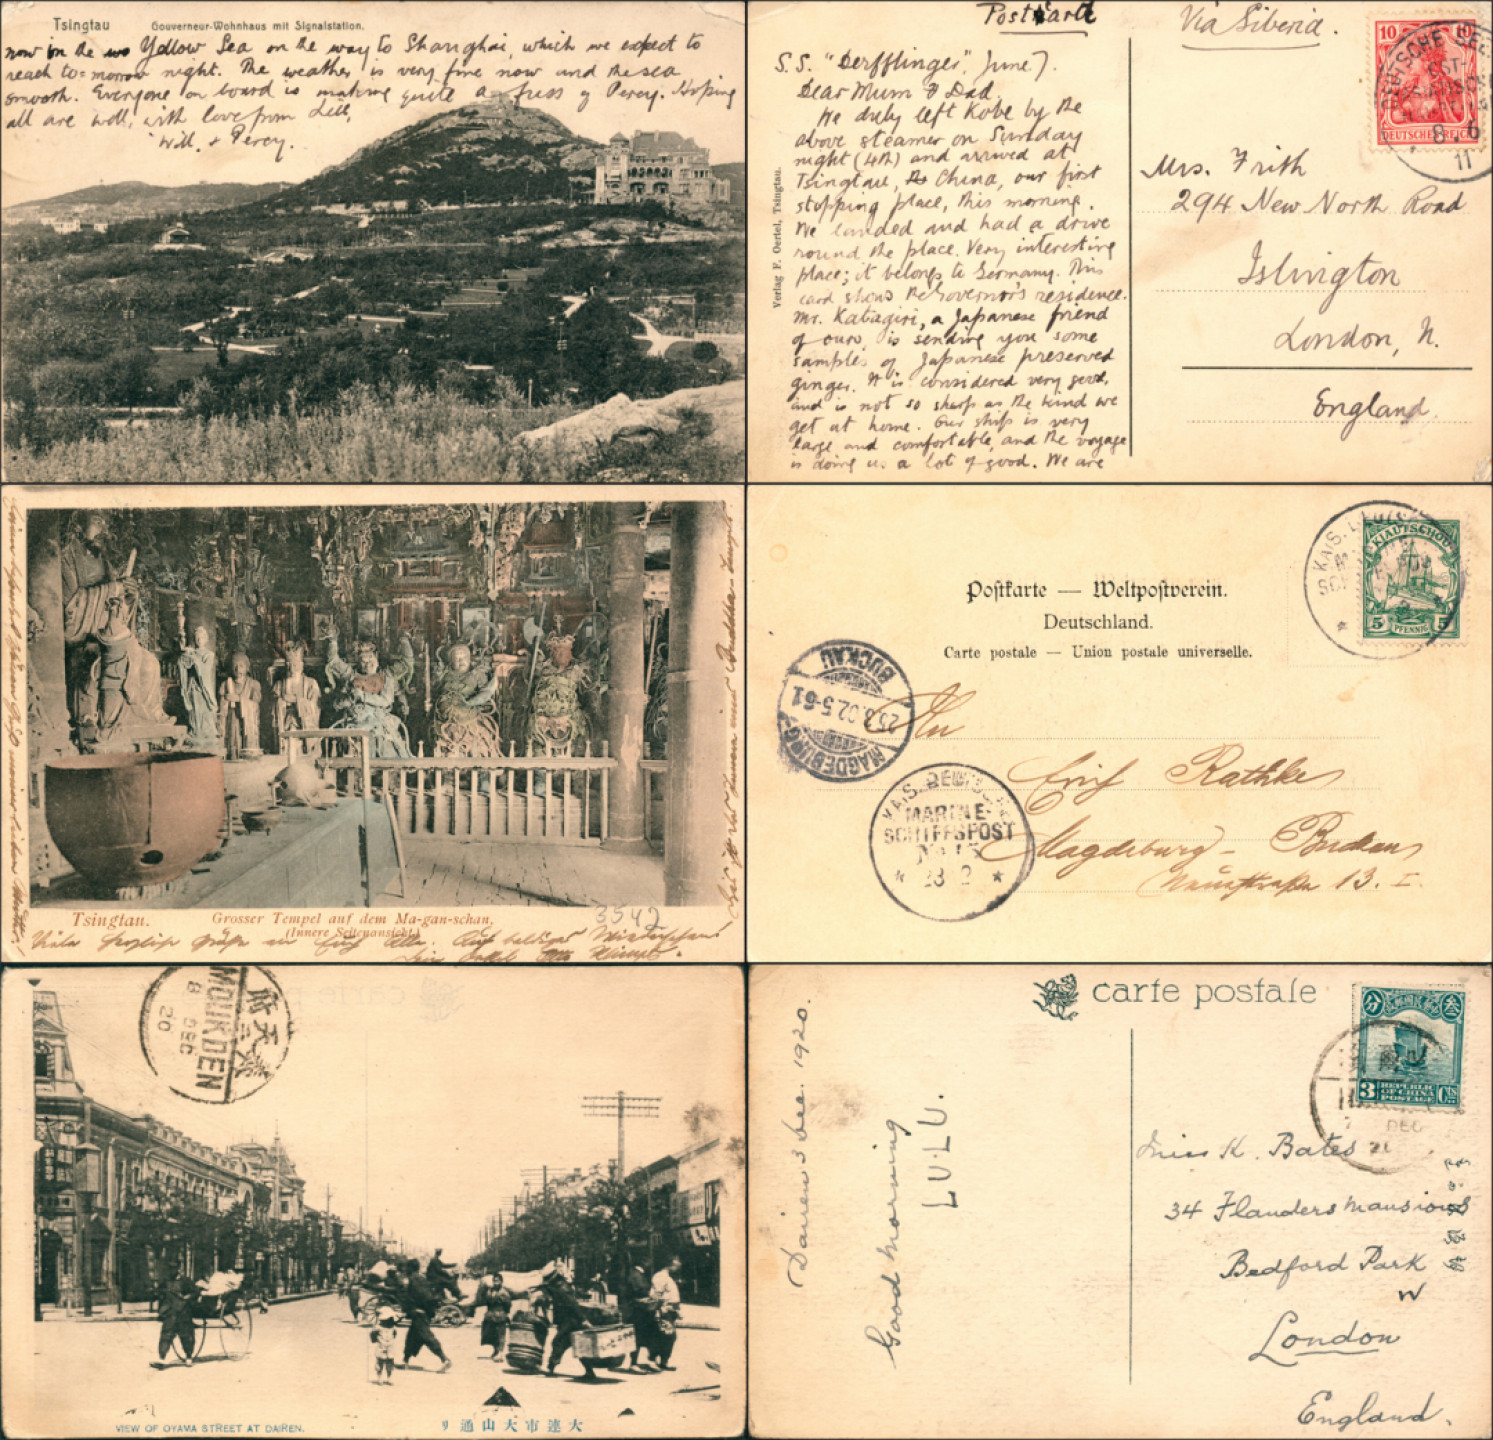 Tsingtau
Gouverneur-Wohnhaus mit Signalstation.
now in the Yellow Sea on the way to Shanghai, which we expect to
reach to-morrow night. The weather is very fine now and the sea
smooth. Everyone on board is making quite a fuss of Percy. Hoping
all are well, with love from Lill,
Will. & Percy.
Postkarte
Via Siberia.
S.S. "Derfflinger", June 7.
Dear Mum & Dad.
We duly left Kobe by the
above steamer on Sunday
night (4th) and arrived at
Tsingtau, China, our first
stopping place, this morning.
We landed and had a drive
round the place. Very interesting
place; it belongs to Germany. This
card shows the Governor's residence.
Mr. Katagiri, a Japanese friend
of ours, is sending you some
samples of Japanese preserved
ginger. It is considered very good,
and is not so sharp as the kind we
get at home. Our ship is very
large and comfortable, and the voyage
is doing us a lot of good. We are
Verlag F. Oertel, Tsingtau.
10 10
DEUTSCHES REICH
DEUTSCHE SEE
OST-
8 6
11
Mrs. Frith
294 New North Road
Islington
London, N.
England.
Tsingtau.
Grosser Tempel auf dem Ma-gan-schan,
(Innere Seitenansicht.)
3542
Postkarte — Weltpostverein.
Deutschland.
Carte postale — Union postale universelle.
KIAUTSCHOU
5 PFENNIG 5
MAGDEBURG
BUCKAU
KAIS. DEUTSCHE
MARINE-
SCHIFFSPOST
An
Rathke
Magdeburg - Buckau
13. I.
奉天
MOUKDEN
8 DEC
20
VIEW OF OYAMA STREET AT DAIREN.
大連市大山通リ
carte postale
3 REPUBLIC OF CHINA POSTAGE Cts
DEC
Dairen 3 Dec. 1920.
Good Morning
LULU.
Miss K. Bates
34 Flanders Mansions
Bedford Park
W
London
England.